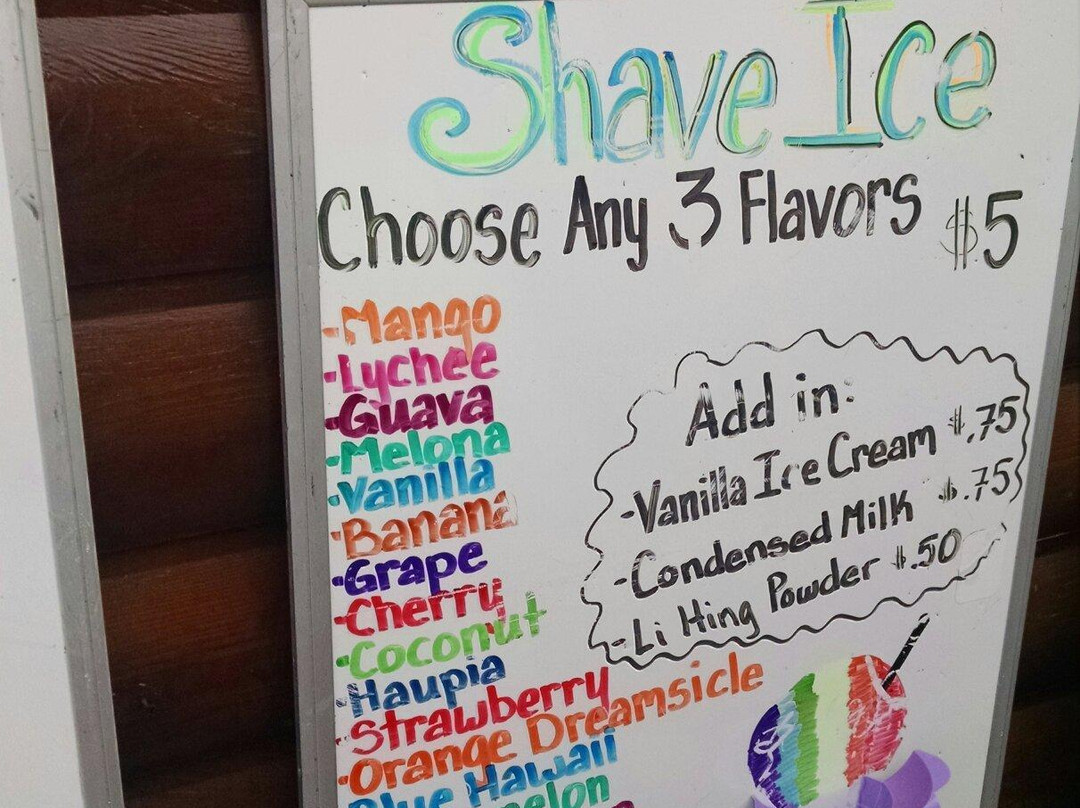 Shave Ice
Choose Any 3 Flavors $5
-Mango
-Lychee
-Guava
-Melona
-Vanilla
-Banana
-Grape
-Cherry
-Coconut
-Haupia
-Strawberry
-Orange Dreamsicle
Blue Hawaii
Add in:
-Vanilla Ice Cream $.75
-Condensed Milk $.75
-Li Hing Powder $.50